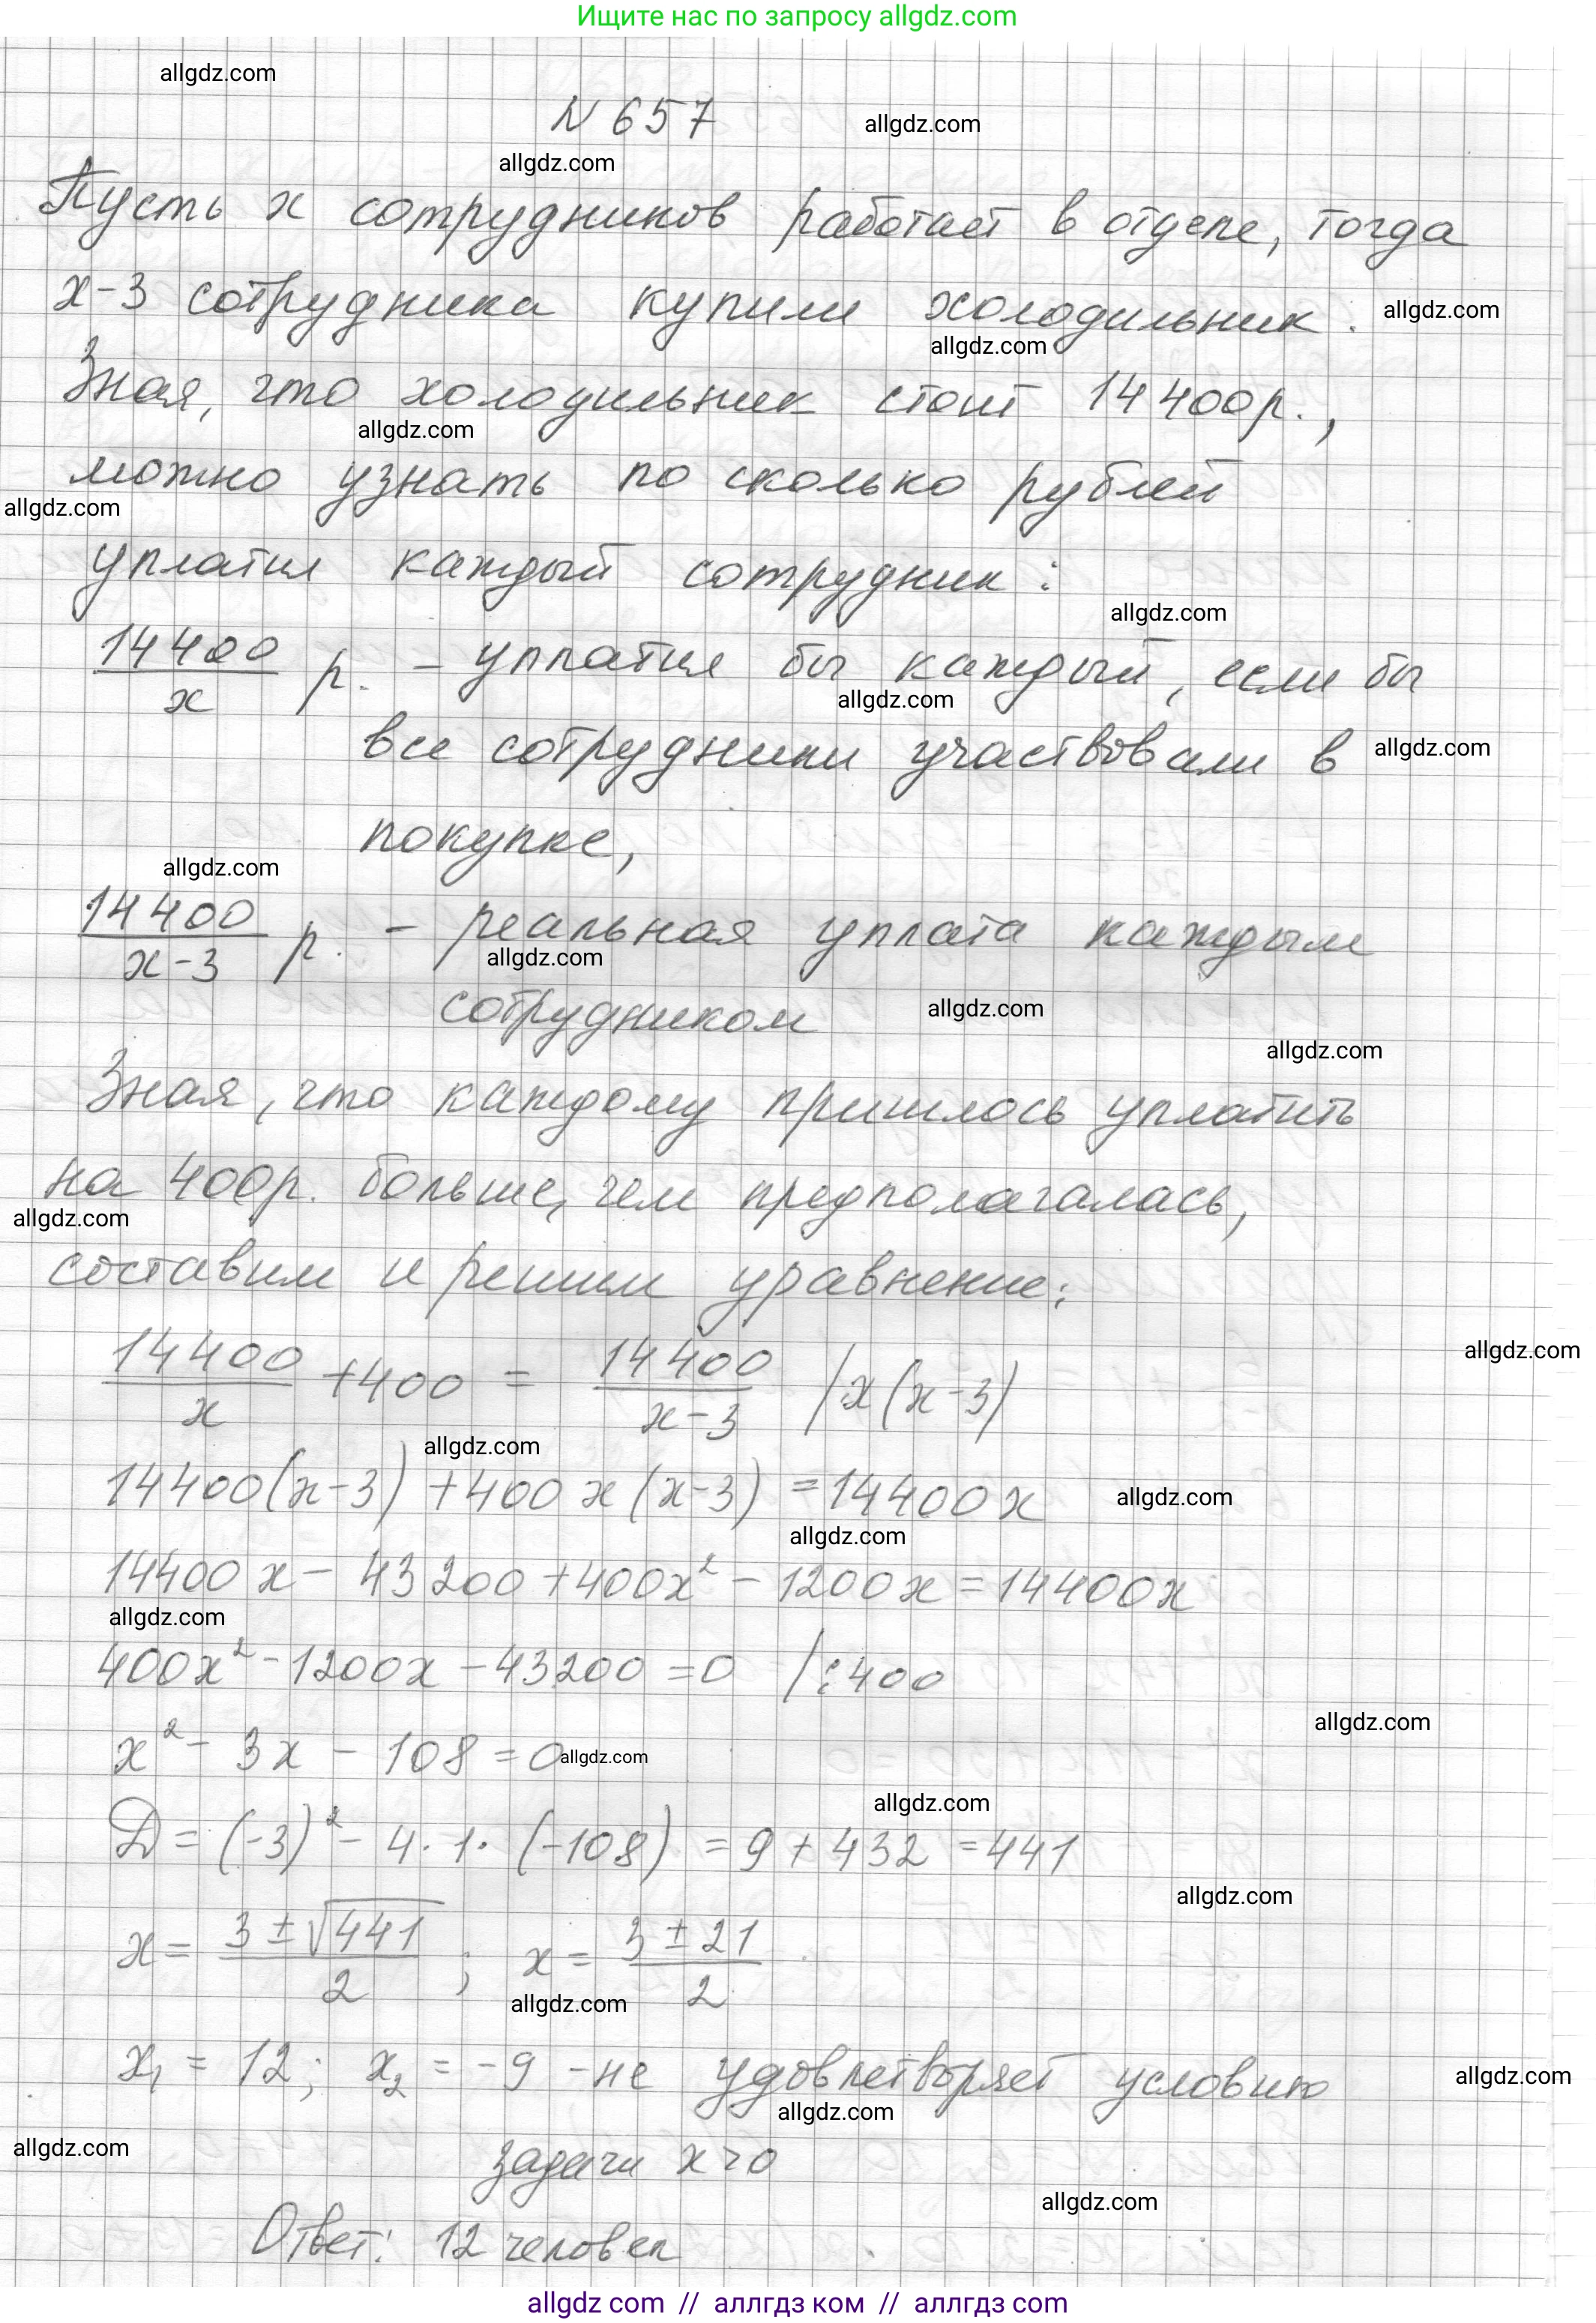 Ищите нас по запросу allgdz.com
allgdz.com
N 657
allgdz.com
allgdz.com
Пусть x сотрудников работает в отделе, тогда
x-3 сотрудника купили холодильник.
allgdz.com
allgdz.com
Зная, что холодильник стоит 14 400р.,
allgdz.com
можно узнать по сколько рублей
allgdz.com
уплатил каждый сотрудник:
allgdz.com
14400/x р. - уплатил бы каждый, если бы
allgdz.com
все сотрудники участвовали в
allgdz.com
покупке,
allgdz.com
14400/x-3 р. - реальная уплата каждым
allgdz.com
сотрудником
allgdz.com
allgdz.com
Зная, что каждому пришлось уплатить
на 400р. больше, чем предполагалась,
allgdz.com
составим и решим уравнение:
14400/x + 400 = 14400/x-3 /x(x-3)
allgdz.com
allgdz.com
14400(x-3) + 400x(x-3) = 14400x
allgdz.com
allgdz.com
14400x - 43200 + 400x² - 1200x = 14400x
allgdz.com
400x² - 1200x - 43200 = 0 /:400
allgdz.com
x² - 3x - 108 = 0
allgdz.com
allgdz.com
D = (-3)² - 4·1·(-108) = 9 + 432 = 441
allgdz.com
x = 3±√441/2 ; x = 3±21/2
allgdz.com
x₁ = 12; x₂ = -9 - не удовлетворяет условию
allgdz.com
allgdz.com
allgdz.com
задачи x>0
allgdz.com
Ответ: 12 человек
allgdz.com // аллгдз ком // аллгдз.com